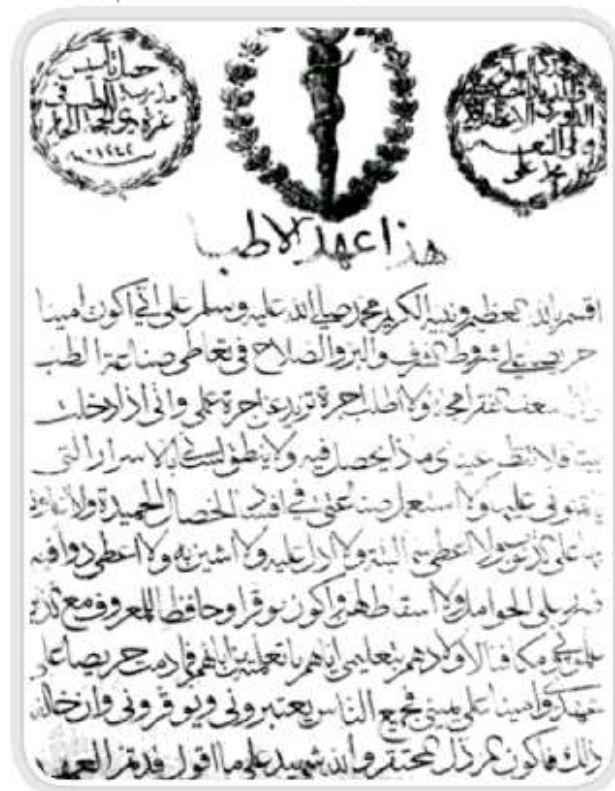 حصل تاسيس
مدرسة الطب فى
غرة الحجة
١٢٤٢
الداورى
ولى النعم
محمد على
هذا عهد الاطبا
اقسم بالله العظيم ونبيه الكريم محمد صلى الله عليه وسلم على انى اكون امينا
حريصا على شروط الشرف والبر والصلاح فى تعاطى صناعة الطب
اسعف الفقرا مجانا ولا اطلب اجرة تزيد عن اجرة عملى وانى اذا دخلت
بيتا فلا تنظر عيناى ماذا يحصل فيه ولا ينطق لسانى بالاسرار التى
يأتمنونى عليها ولا استعمل صناعتى فى افساد الخصال الحميدة ولا
بها على الذنوب ولا اعطى سما البتة ولا ادل عليه ولا اشير به ولا اعطى دوا فيه
ضرر على الحوامل ولا اسقاط لهن واكون موقرا وحافظا للمعروف مع الذين
علمونى ومكافئا لاولادهم بتعليمى اياهم ما تعلمته من ابائهم فما دمت حريصا على
عهدى وامينا على يمينى فجميع الناس يعتبرونى ويوقرونى وان خالفت
ذلك فاكون المحتقر والله شهيد على ما اقول قد تم العهد